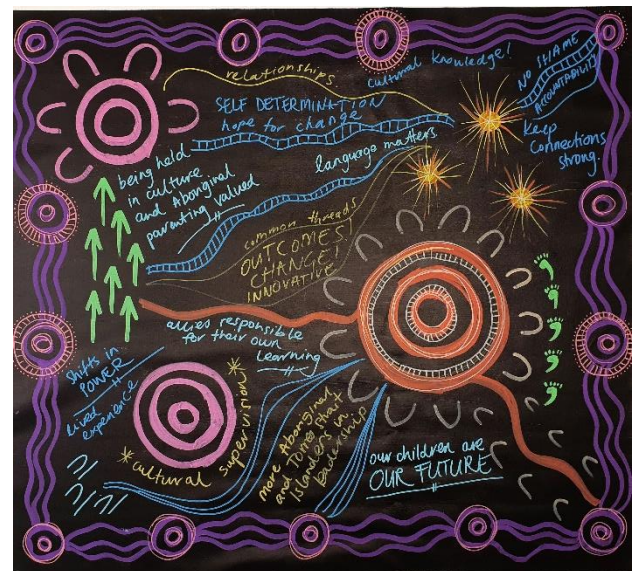 relationships
cultural knowledge!
NO SHAME
ACCOUNTABILITY
SELF DETERMINATION
hope for change
Keep
Connections
strong.
language matters
being held
in culture
and Aboriginal
parenting valued
common threads
OUTCOMES!
CHANGE!
INNOVATIVE
allies responsible
for their own
learning
Shifts in
POWER
lived
experience
*cultural supervision*
more Aboriginal
and Torres Strait
Islanders in
leadership
our children are
OUR FUTURE